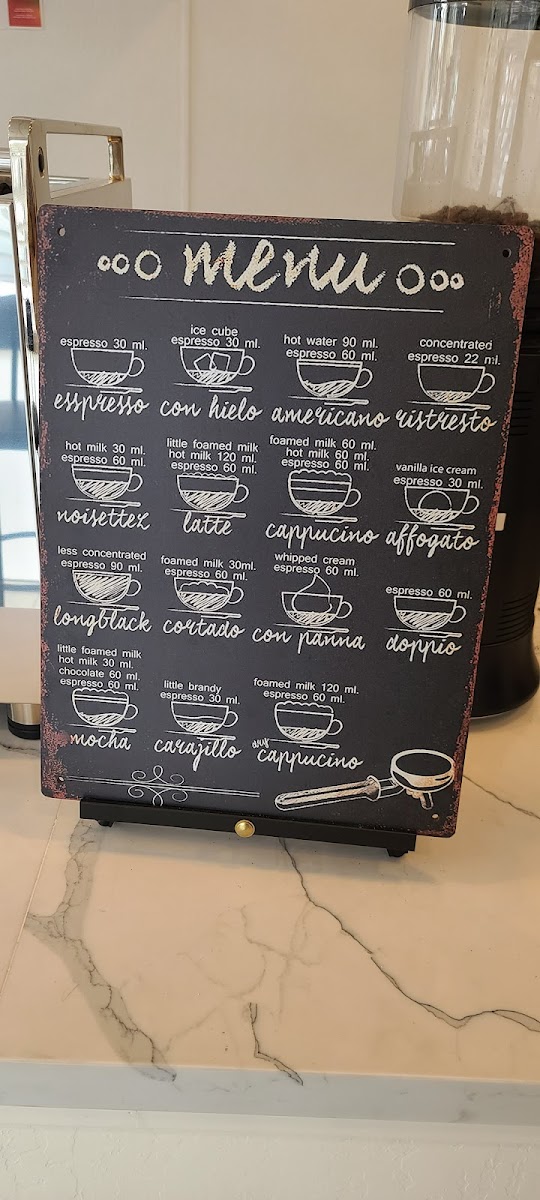 menu
espresso 30 ml.
esspresso
ice cube
espresso 30 ml.
con hielo
hot water 90 ml.
espresso 60 ml.
americano
concentrated
espresso 22 ml.
ristresto
hot milk 30 ml.
espresso 60 ml.
noisettez
little foamed milk
hot milk 120 ml.
espresso 60 ml.
latte
foamed milk 60 ml.
hot milk 60 ml.
espresso 60 ml.
cappucino
vanilla ice cream
espresso 30 ml.
affogato
less concentrated
espresso 90 ml.
longblack
foamed milk 30ml.
espresso 60 ml.
cortado
whipped cream
espresso 60 ml.
con panna
espresso 60 ml.
doppio
little foamed milk
hot milk 30 ml.
chocolate 60 ml.
espresso 60 ml.
mocha
little brandy
espresso 30 ml.
carajillo
foamed milk 120 ml.
espresso 60 ml.
dry
cappucino